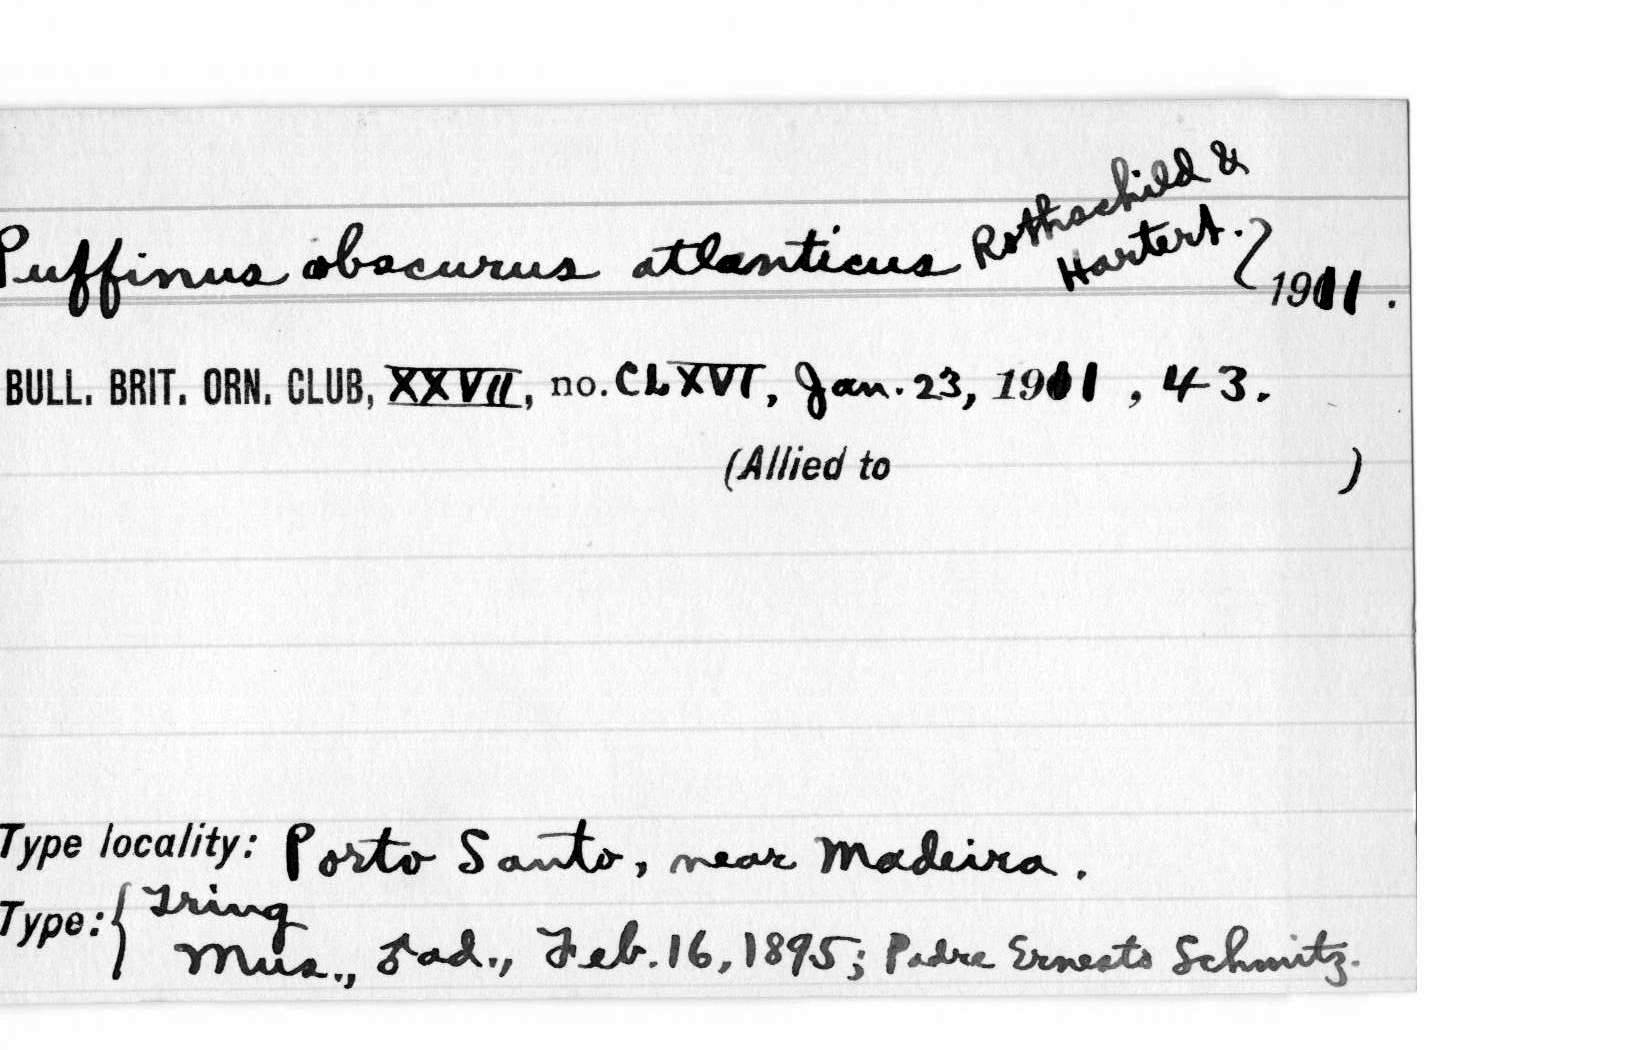 Puffinus obscurus atlanticus Rothschild &
Hartert. } 1911 .
BULL. BRIT. ORN. CLUB, XXVII, no. CLXVI, Jan. 23, 1911 , 43.
(Allied to )
Type locality: Porto Santo, near Madeira.
Type: { Tring
Mus., ♂ ad., Feb. 16, 1895; Padre Ernesto Schmitz.